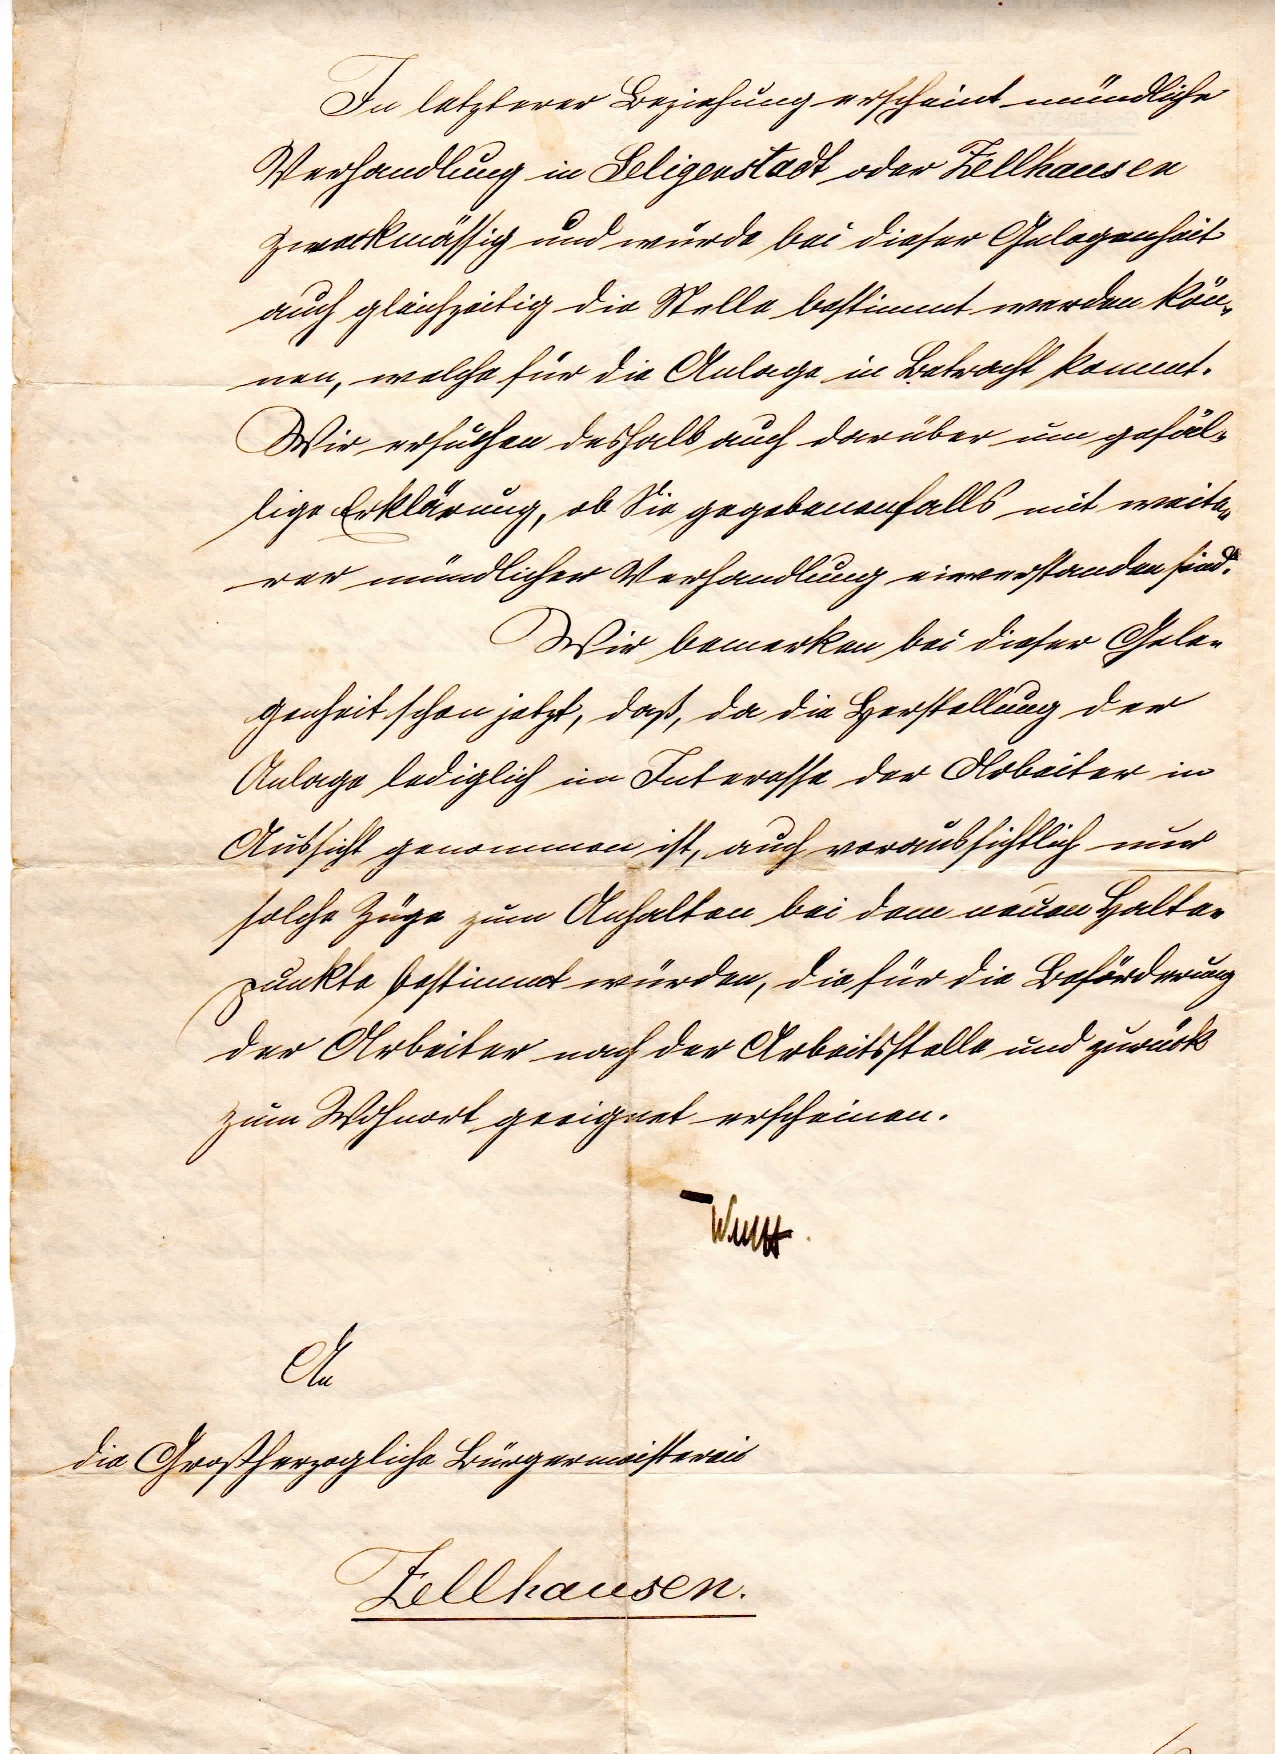 In letzterer Beziehung erscheint mündliche
Verhandlung in Seligenstadt oder Zellhausen
zweckmässig und würde bei dieser Gelegenheit
auch gleichzeitig die Stelle bestimmt werden kön-
nen, welche für die Anlage in Betracht kommt.
Wir ersuchen deshalb auch darüber um gefäl-
lige Erklärung, ob Sie gegebenenfalls mit weite-
rer mündlicher Verhandlung einverstanden sind.
Wir bemerken bei dieser Gele-
genheit schon jetzt, daß, da die Herstellung der
Anlage lediglich im Interesse der Arbeiter in
Aussicht genommen ist, auch voraussichtlich nur
solche Züge zum Anhalten bei dem neuen Halte-
punkte bestimmt würden, die für die Beförderung
der Arbeiter nach der Arbeitsstelle und zurück
zum Wohnort geeignet erscheinen.
An
die Großherzogliche Bürgermeisterei
Zellhausen.